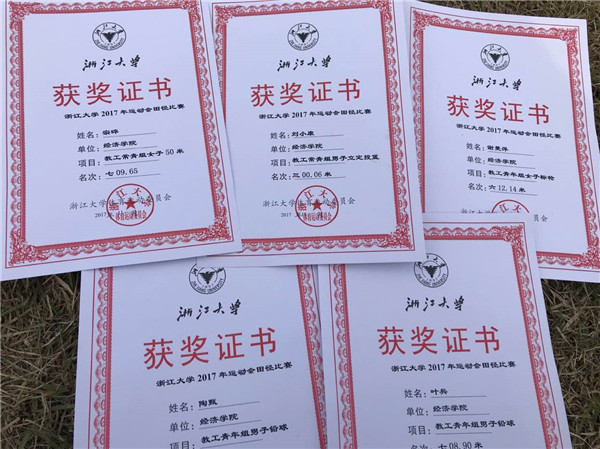 浙江大学
获奖证书
浙江大学 2017 年运动会田径比赛
姓名:
单位: 经济学院
项目: 教工常青组女子 50 米
名次: 七 09.65
浙江大学体育运动委员会
浙江大学
获奖证书
浙江大学 2017 年运动会田径比赛
姓名: 刘小康
单位: 经济学院
项目: 教工常青组男子立定投篮
名次: 三 00.06 米
浙江大学体育运动委员会
浙江大学
获奖证书
浙江大学 2017 年运动会田径比赛
姓名: 谢曼萍
单位: 经济学院
项目: 教工青年组女子标枪
名次: 六 12.14 米
浙江大学
获奖证书
浙江大学 2017 年运动会田径比赛
姓名: 陶甄
单位: 经济学院
项目: 教工青年组男子铅球
浙江大学
获奖证书
浙江大学 2017 年运动会田径比赛
姓名: 叶兵
单位: 经济学院
项目: 教工青年组男子铅球
名次: 七 08.90 米